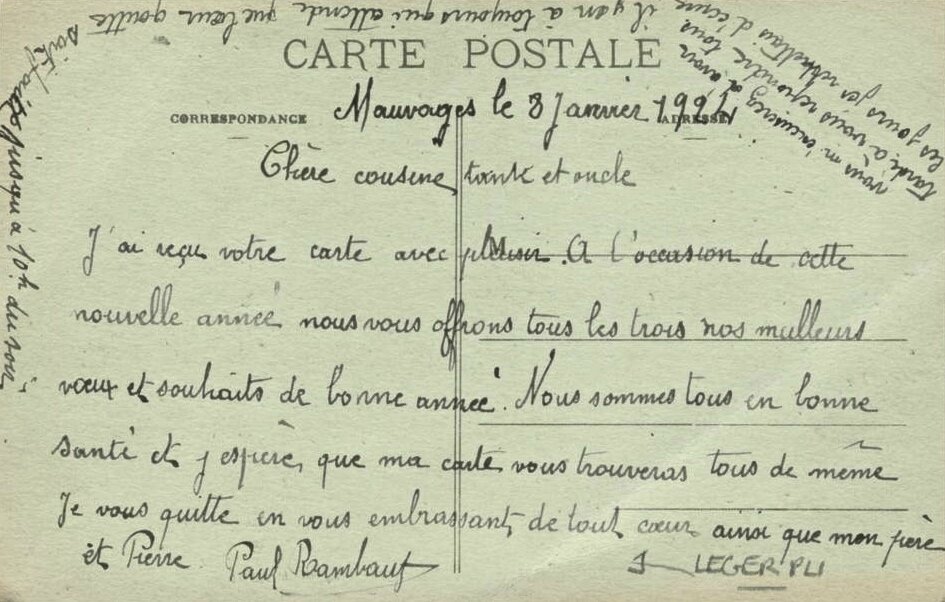 CARTE POSTALE
CORRESPONDANCE
ADRESSE
Mauvages le 8 Janvier 1924
Chère cousine tante et oncle
J'ai reçu votre carte avec plaisir. A l'occasion de cette
nouvelle année nous vous offrons tous les trois nos meilleurs
vœux et souhaits de bonne année. Nous sommes tous en bonne
santé et j'espère, que ma carte vous trouveras tous de même
Je vous quitte en vous embrassant de tout cœur ainsi que mon père
et Pierre. Paul Rambaut
vous m'excuserez d'avoir
tardé à vous répondre tous
les jours je
il y en a toujours qui attende que leur goutte
soit faite jusqu'à 10h. du soir
LEGER PLI